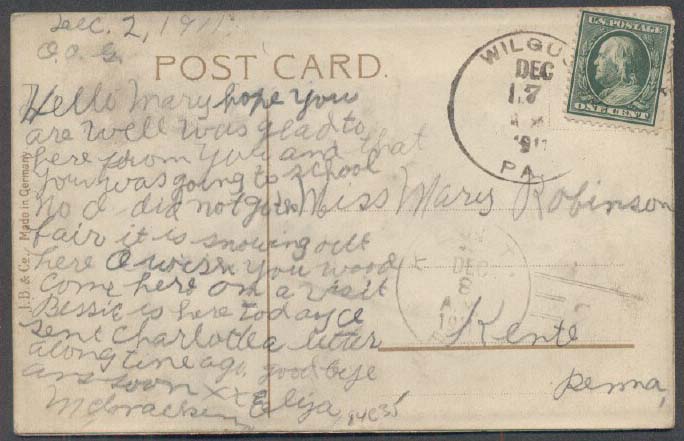 Dec. 2, 1911
O. O. G.
POST CARD.
Hello Mary hope you
are well was glad to
here from you and that
you was going to school
No I did not go to
fair it is snowing out
here O wish you wood
Come here on a visit
Bessie is here today I
sent Charlotte a letter
along time ago goodbye
ans soon xx Eliza
McCracken
Miss Mary Robinson
Kent
Penna,
WILGUS
DEC
17
1911
PA.
DEC
8
A
19
U.S. POSTAGE
ONE CENT
I. B. & Co., Made in Germany